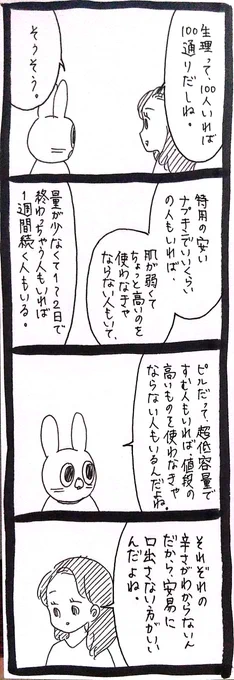 生理って、100人いれば
100通りだしね。
そうそう。
特用の安い
ナプキンでいいくらい
の人もいれば、
肌が弱くて
ちょっと高いのを
使わなきゃ
ならない人もいて、
量が少なくて1〜2日で
終わっちゃう人もいれば
1週間続く人もいる。
ピルだって、超低容量で
すむ人もいれば、値段の
高いものを使わなきゃ
ならない人もいるんだよね。
それぞれの
辛さがわからないん
だから、安易に
口出さない方がいい
んだよね。